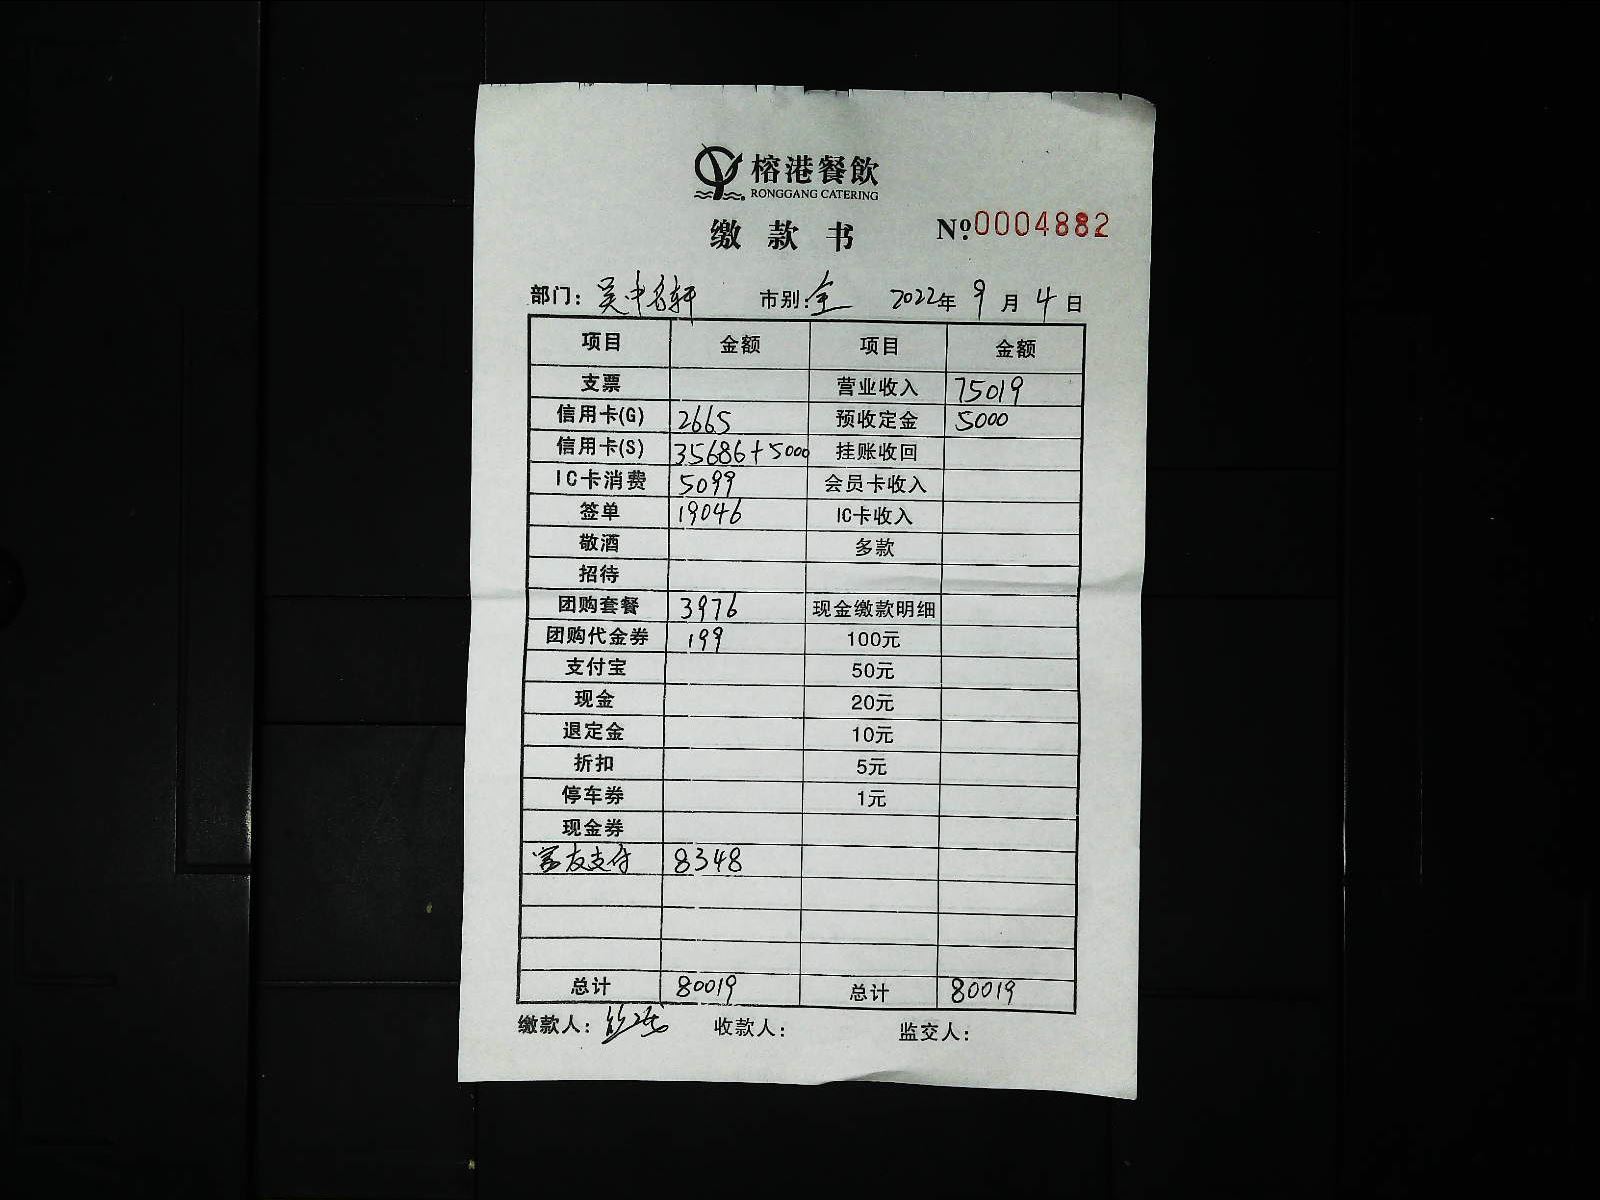 榕港餐飲
RONGGANG CATERING
缴款书 Nº.0004882
部门：吴中名轩 市别：全 2022年9月4日
项目 金额 项目 金额
支票 营业收入 75019
信用卡(G) 2665 预收定金 5000
信用卡(S) 35686+5000 挂账收回
IC卡消费 5099 会员卡收入
签单 19046 IC卡收入
敬酒 多款
招待
团购套餐 3976 现金缴款明细
团购代金券 199 100元
支付宝 50元
现金 20元
退定金 10元
折扣 5元
停车券 1元
现金券
友支付 8348
总计 80019 总计 80019
缴款人： 收款人： 监交人：